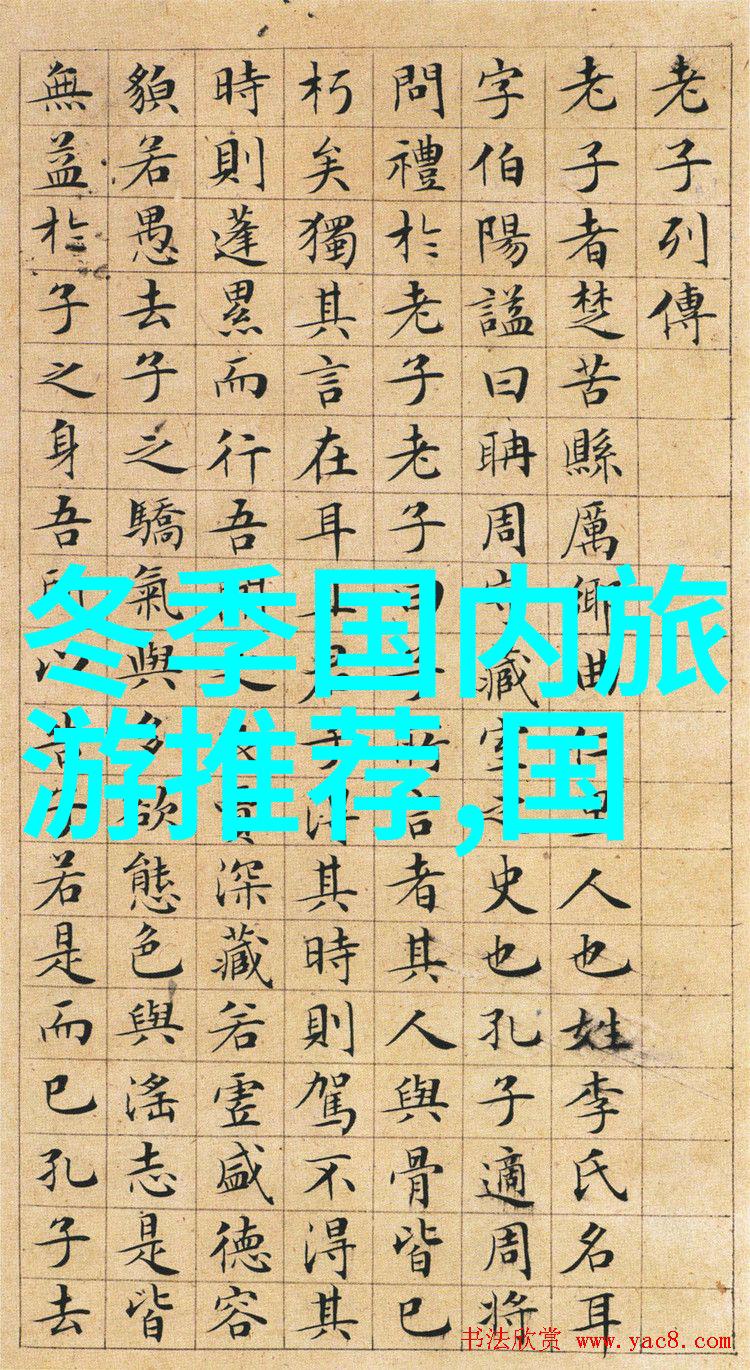 老子列傳
老子者楚苦縣厲鄉曲仁里人也姓李氏名耳
字伯陽謚曰聃周守藏室之史也孔子適周將
問禮於老子老子曰子所言者其人與骨皆已
朽矣獨其言在耳且君子得其時則駕不得其
時則蓬累而行吾聞之良賈深藏若虛盛德容
貌若愚去子之驕氣與多欲態色與淫志是皆
無益於子之身吾所以告子若是而已孔子去
冬季国内旅
游推荐,国
书法欣赏 www.yac8.com